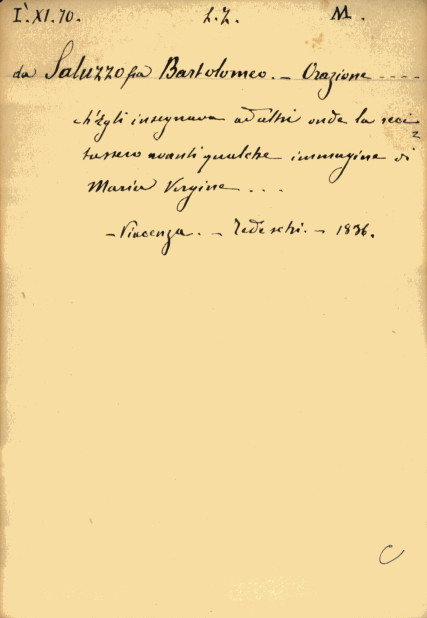 I.XI.70. L.Z. M.
da Saluzzo fra Bartolomeo. — Orazione ....
ch'egli insegnava ad altri onde la reci-
tassero avanti qualche immagine di
Maria Vergine ...
— Vicenza. — Tedeschi. — 1836.
C